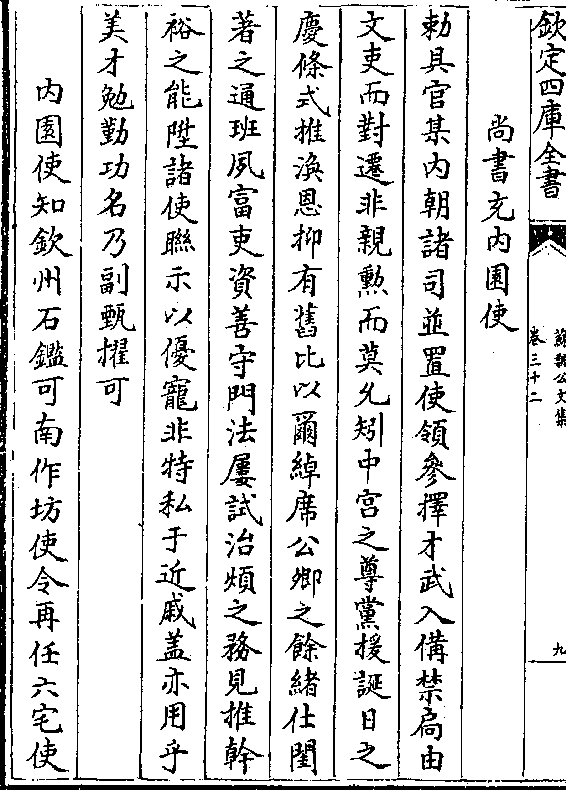 欽定四庫全書
蘇魏公文集
卷三十二
九
尚書充內園使
勅具官某內朝諸司並置使領參擇才武入備禁扃由
文吏而對遷非親勲而莫允矧中宮之尊黨援誕日之
慶條式推渙恩抑有舊比以爾綽席公卿之餘緒仕閨
著之通班夙富吏資善守門法屢試治煩之務見推幹
裕之能陞諸使聯示以優寵非特私于近戚蓋亦用乎
美才勉勤功名乃副甄擢可
內園使知欽州石鑑可南作坊使令再任六宅使